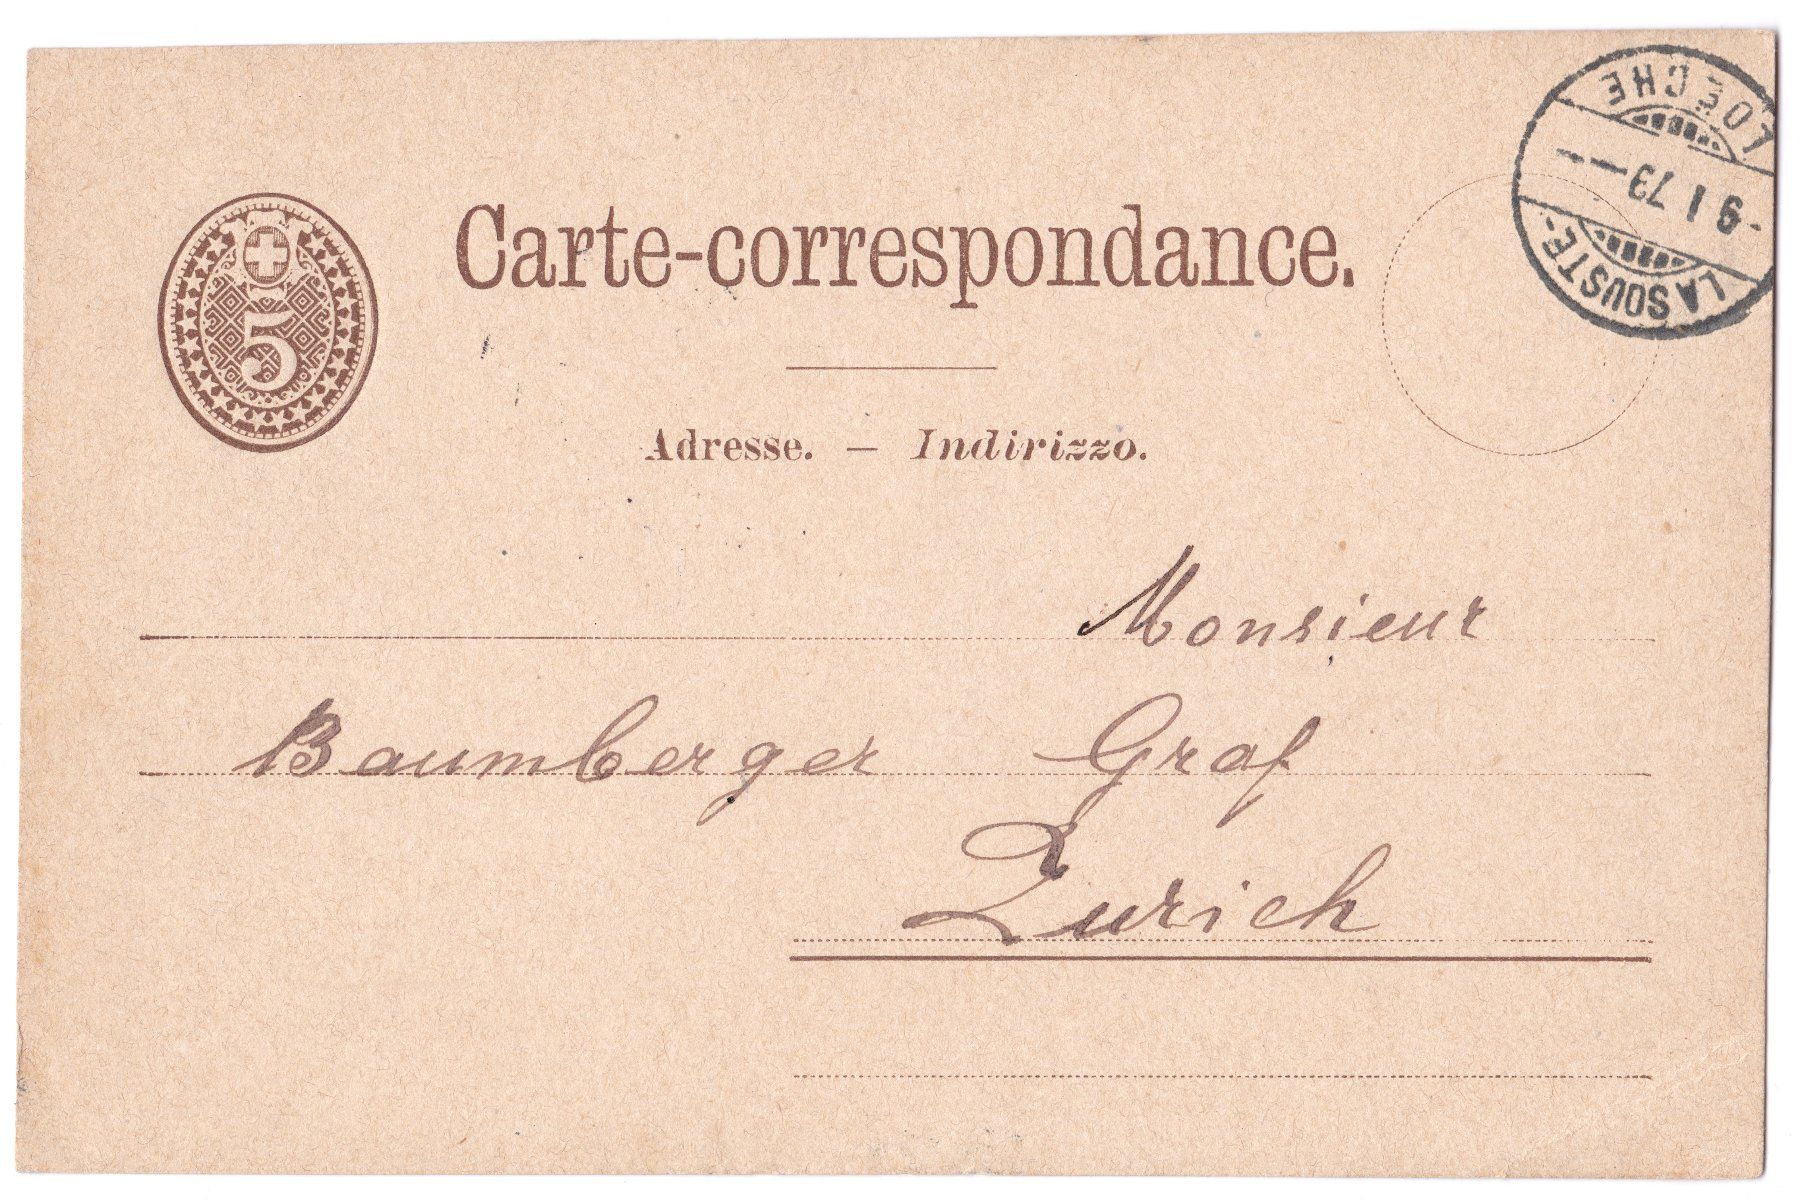 5
Carte-correspondance.
LA SOUSTE-LOECHE
9 I 73
Adresse. — Indirizzo.
Monsieur
Baumberger Graf
Zurich